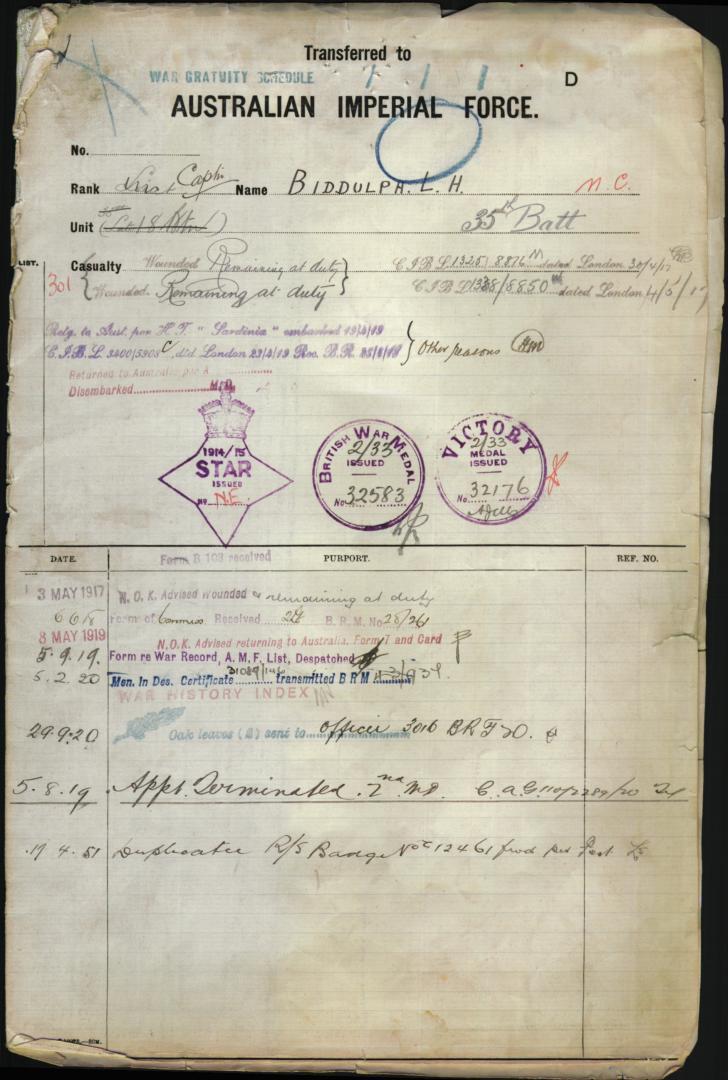 Transferred to
WAR GRATUITY SCHEDULE 1 1 1 D
AUSTRALIAN IMPERIAL FORCE.
No.
Rank Capt. Name BIDDULPH. L. H. M.C.
Unit 35th Batt
LIST. Casualty Wounded Remaining at duty C.I.B.L. 1325/8876 M dated London 30/4/17
301 Wounded. Remaining at duty C.I.B.L. dated London 4/5/17
Retg. to Aust. per H.T. "Sardinia" embarked Other reasons
C.I.B.L. 3400/5908 C d/d London Rec. B.R.
Returned to Australia per
Disembarked M.D.
1914/15
STAR
ISSUED
No N.E.
BRITISH WAR MEDAL
2/33
ISSUED
No 32583
VICTORY
2/33
MEDAL
ISSUED
No 32176
Form B 103 received
DATE. PURPORT. REF. NO.
3 MAY 1917 N.O.K. Advised Wounded & remaining at duty
Form of Received B.R.M. No 28/261
8 MAY 1919 N.O.K. Advised returning to Australia. Form T and Card
5.9.19. Form re War Record, A.M.F. List, Despatched
5.2.20 Men. in Des. Certificate transmitted B R M
WAR HISTORY INDEX
29.9.20 Oak leaves (2) sent to Officer 3016 BRF 20.
5.8.19 Appt. Terminated. 2nd MD. C.A.G. 110/2289/20
19 4 51 Duplicate R/S Badge No C12461 fwd per Post